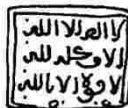 لا اله الا الله
الامر كله لله
لا قوة الا بالله